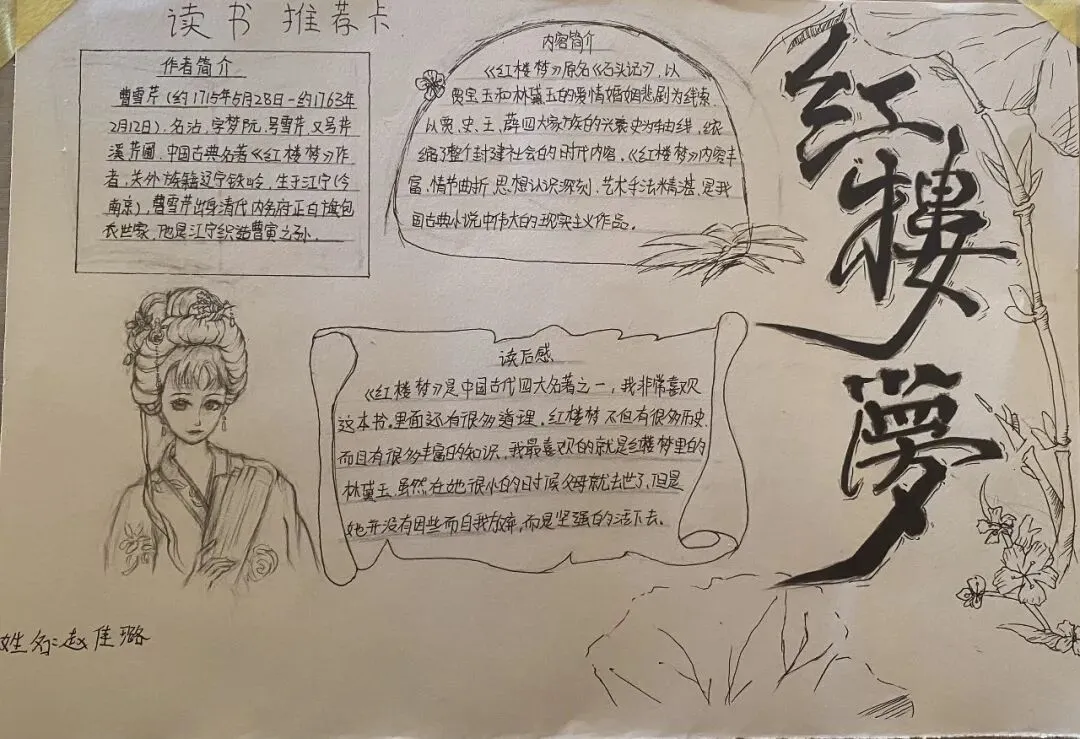 读书推荐卡
作者简介
曹雪芹（约1715年5月28日-约1763年
2月12日），名沾，字梦阮，号雪芹，又号芹
溪，芹圃，中国古典名著《红楼梦》作
者，关外祖籍辽宁铁岭，生于江宁（今
南京），曹雪芹出身清代内务府正白旗包
衣世家，他是江宁织造曹寅之孙。
内容简介
《红楼梦》原名《石头记》，以
贾宝玉和林黛玉的爱情婚姻悲剧为线索，
以贾、史、王、薛四大家族的兴衰史为轴线，浓
缩了整个封建社会的时代内容。《红楼梦》内容丰
富，情节曲折，思想认识深刻，艺术手法精湛，是我
国古典小说中伟大的现实主义作品。
红楼梦
读后感
《红楼梦》是中国古代四大名著之一，我非常喜欢
这本书。里面还有很多道理。红楼梦不但有很多历史
而且有很多丰富的知识，我最喜欢的就是红楼梦里的
林黛玉，虽然在她很小的时候父母就去世了，但是
她并没有因些而自我放弃，而是坚强的活下去。
姓名：赵佳璐